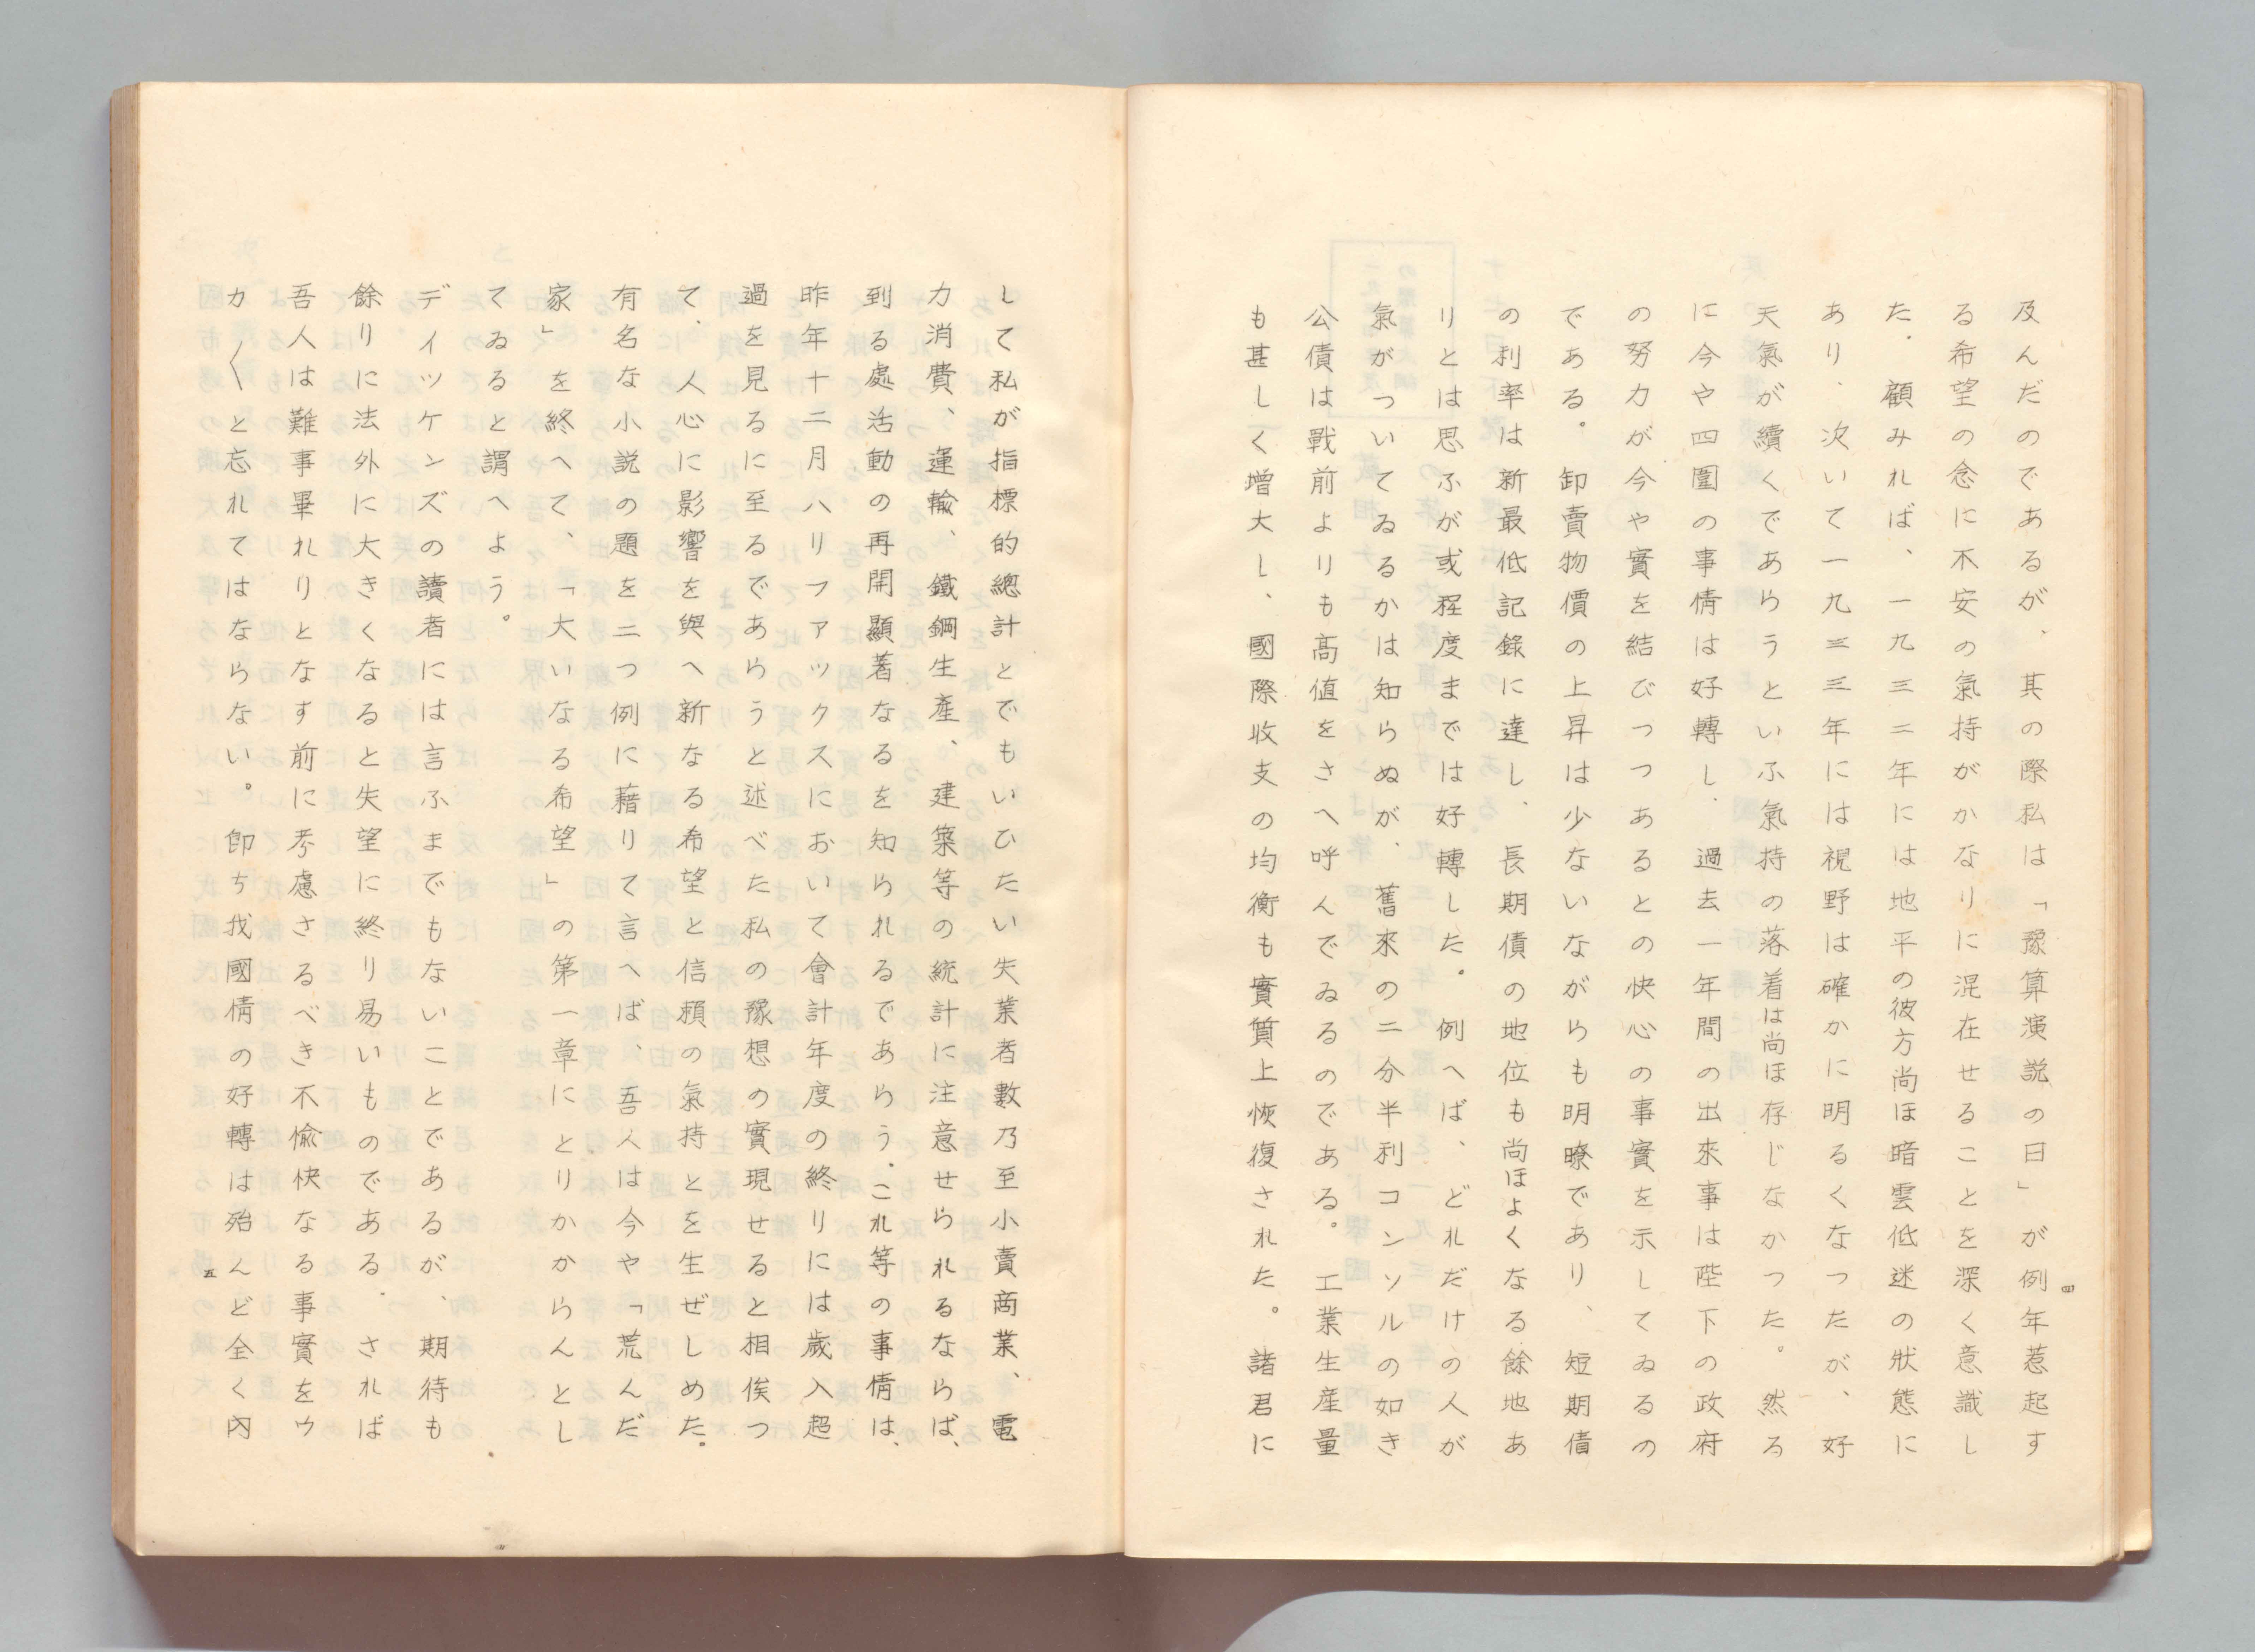 及んだのであるが、其の際私は「豫算演説の日」が例年惹起す
る希望の念に不安の氣持がかなりに混在せることを深く意識し
た。顧みれば、一九三二年には地平の彼方尚ほ暗雲低迷の狀態に
あり、次いで一九三三年には視野は確かに明るくなつたが、好
天氣が續くであらうといふ氣持の落着は尚ほ存じなかつた。然る
に今や四圍の事情は好轉し、過去一年間の出來事は陛下の政府
の努力が今や實を結びつつあるとの快心の事實を示してゐるの
である。卸賣物價の上昇は少ないながらも明瞭であり、短期債
の利率は新最低記錄に達し、長期債の地位も尚ほよくなる餘地あ
りとは思ふが或程度までは好轉した。例へば、どれだけの人が
氣がついてゐるかは知らぬが、舊來の二分半利コンソルの如き
公債は戰前よりも高値をさへ呼んでゐるのである。工業生産量
も甚しく增大し、國際收支の均衡も實質上恢復された。諸君に
四
して私が指標的總計とでもいひたい失業者數乃至小賣商業、電
力消費、運輸、鐵鋼生產、建築等の統計に注意せられるならば、
到る處活動の再開顯著なるを知られるであらう。これ等の事情は、
昨年十二月ハリファックスにおいて會計年度の終りには歲入超
過を見るに至るであらうと述べた私の豫想の實現せると相俟つ
て、人心に影響を與へ新なる希望と信賴の氣持とを生ぜしめた。
有名な小說の題を二つ例に藉りて言へば、吾人は今や「荒んだ
家」を終へて、「大いなる希望」の第一章にとりかからんとし
てゐると謂へよう。
デイツケンズの讀者には言ふまでもないことであるが、期待も
餘りに法外に大きくなると失望に終り易いものである。されば
吾人は難事畢れりとなす前に考慮さるべき不愉快なる事實をウ
カ〱と忘れてはならない。卽ち我國情の好轉は殆んど全く內
五